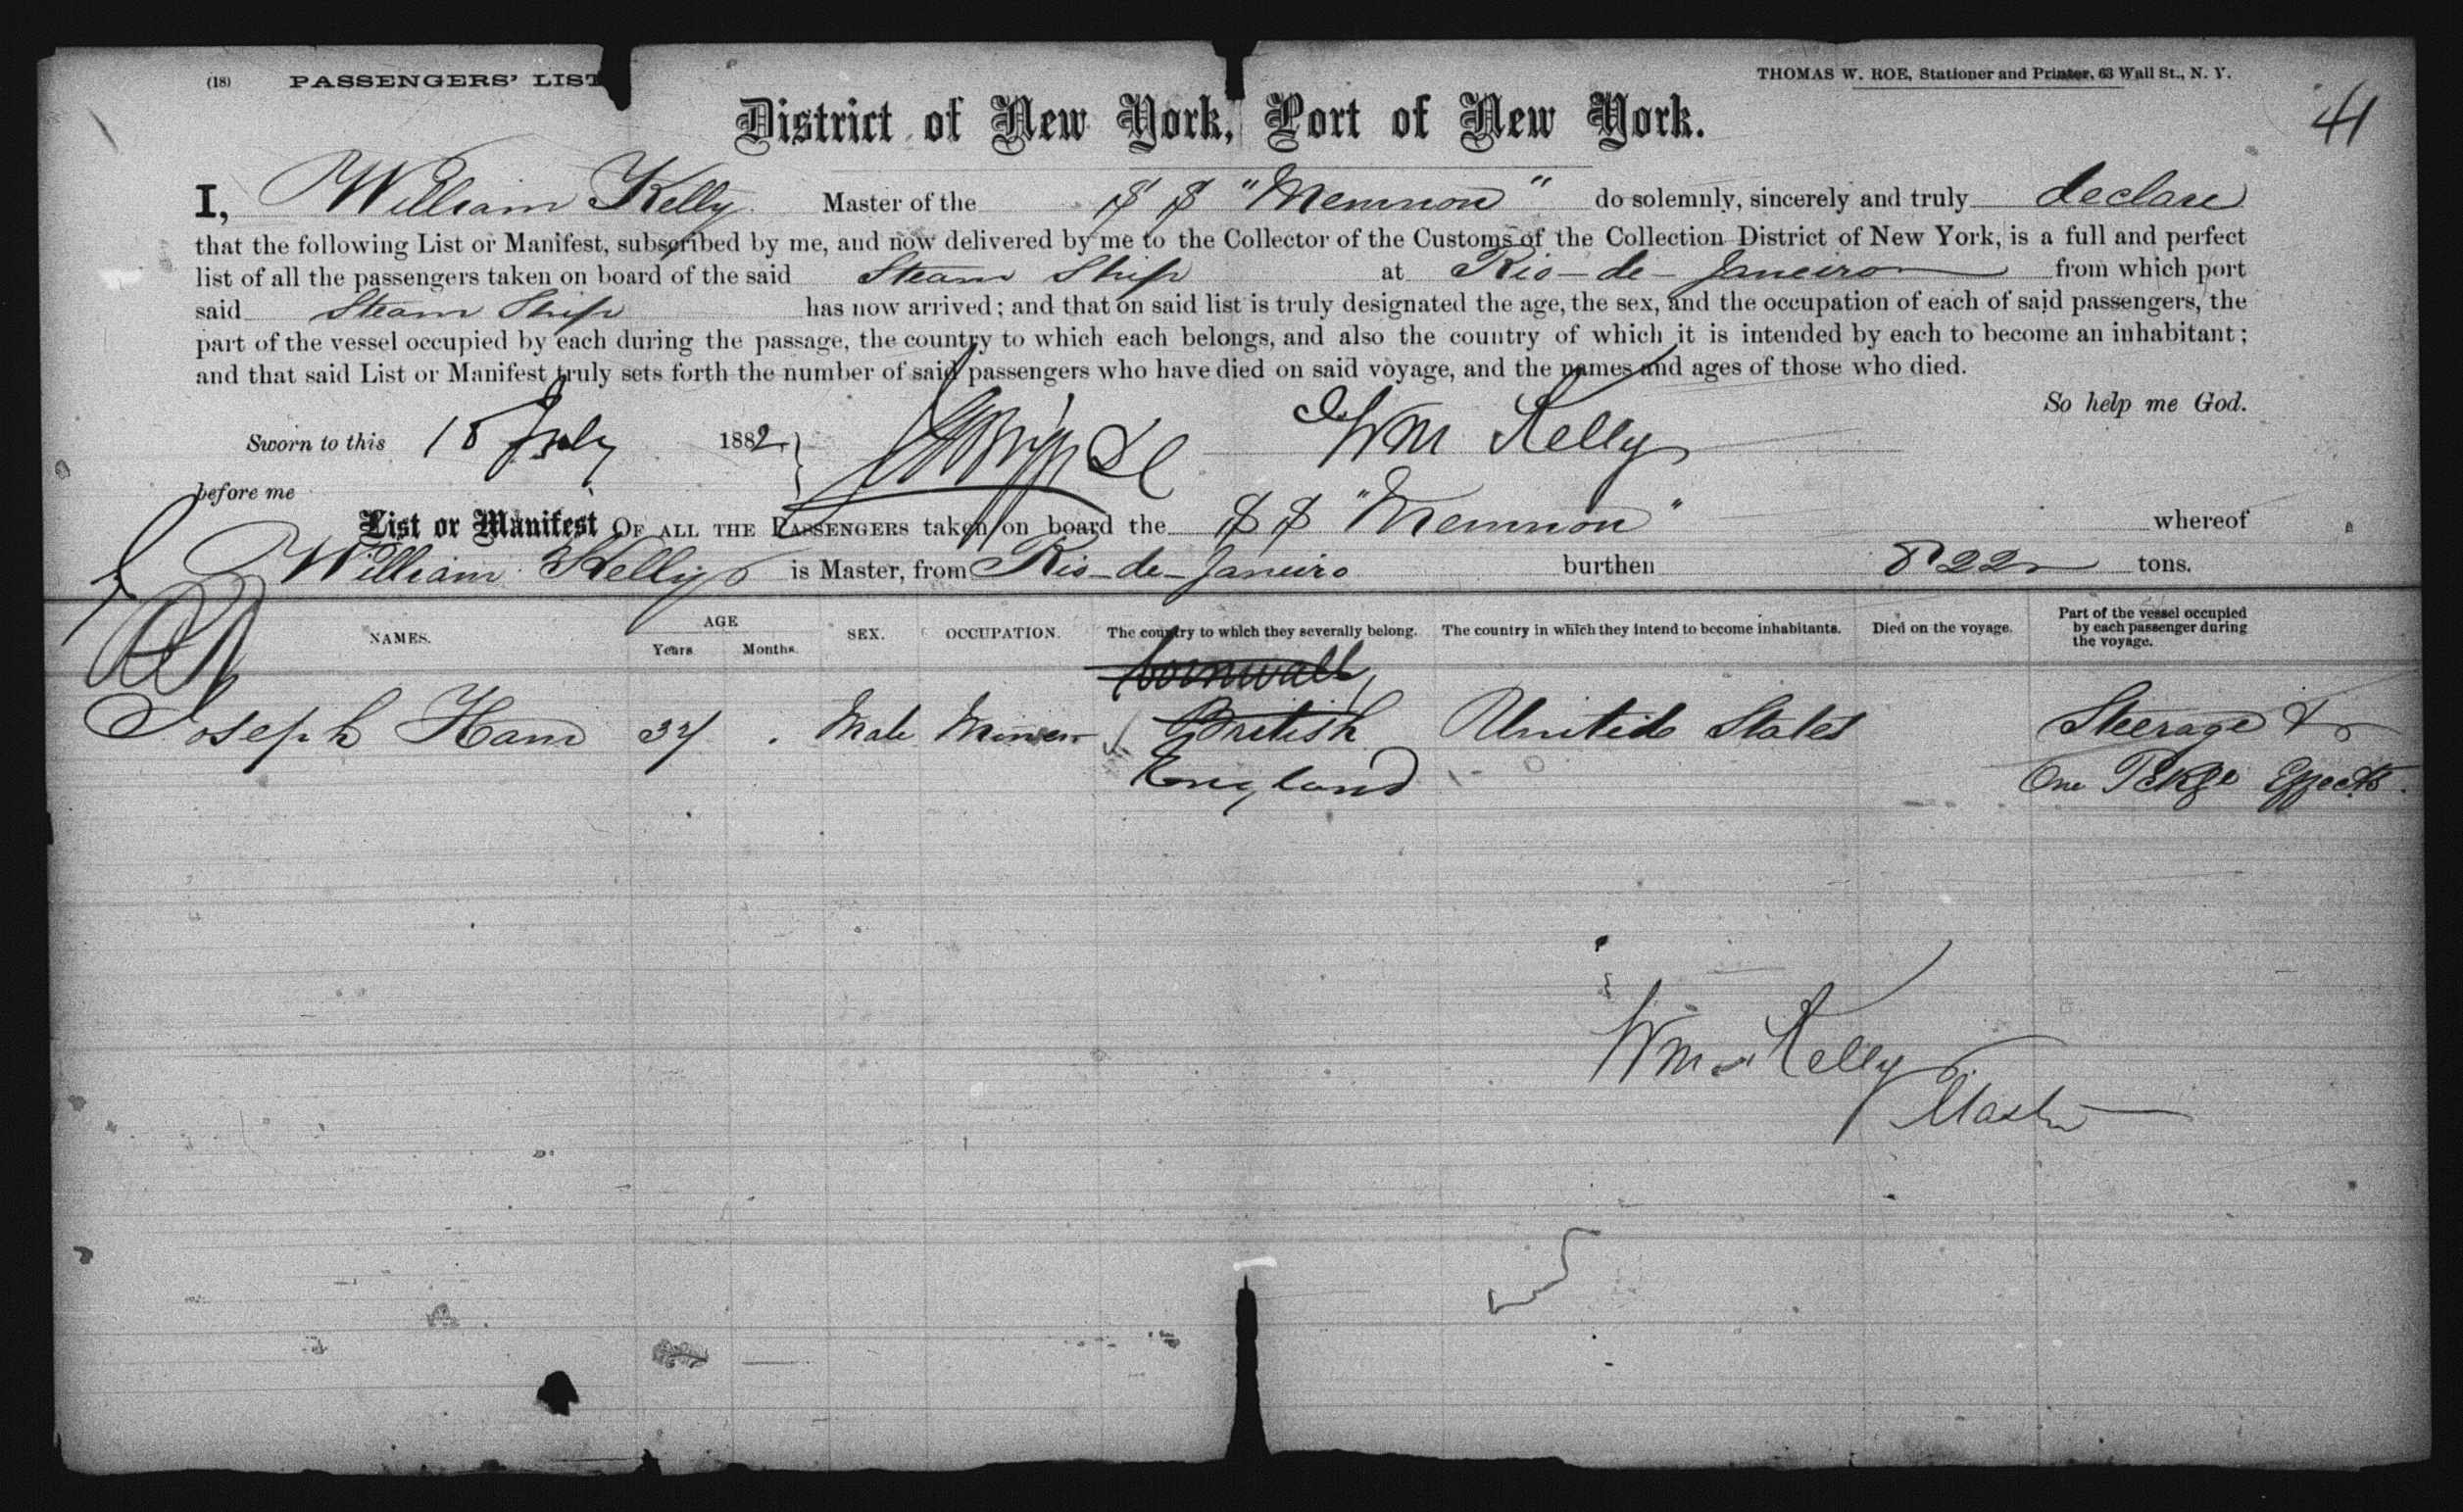 (18) PASSENGERS' LIST
THOMAS W. ROE, Stationer and Printer, 63 Wall St., N. Y.
41
District of New York, Port of New York.
I, William Kelly Master of the S S "Memnon" do solemnly, sincerely and truly declare
that the following List or Manifest, subscribed by me, and now delivered by me to the Collector of the Customs of the Collection District of New York, is a full and perfect
list of all the passengers taken on board of the said Steam Ship at Rio-de-Janeiro from which port
said Steam Ship has now arrived; and that on said list is truly designated the age, the sex, and the occupation of each of said passengers, the
part of the vessel occupied by each during the passage, the country to which each belongs, and also the country of which it is intended by each to become an inhabitant;
and that said List or Manifest truly sets forth the number of said passengers who have died on said voyage, and the names and ages of those who died.
So help me God.
Sworn to this 18 July 1882 Wm Kelly
before me
List or Manifest OF ALL THE PASSENGERS taken on board the S S "Memnon" whereof
William Kelly is Master, from Rio-de-Janeiro burthen 822 tons.
NAMES. AGE Years Months. SEX. OCCUPATION. The country to which they severally belong. The country in which they intend to become inhabitants. Died on the voyage. Part of the vessel occupied by each passenger during the voyage.
Cornwall
Joseph Ham 37 Male Miner British United States Steerage &
England One Pckge Effects.
Wm Kelly
Master